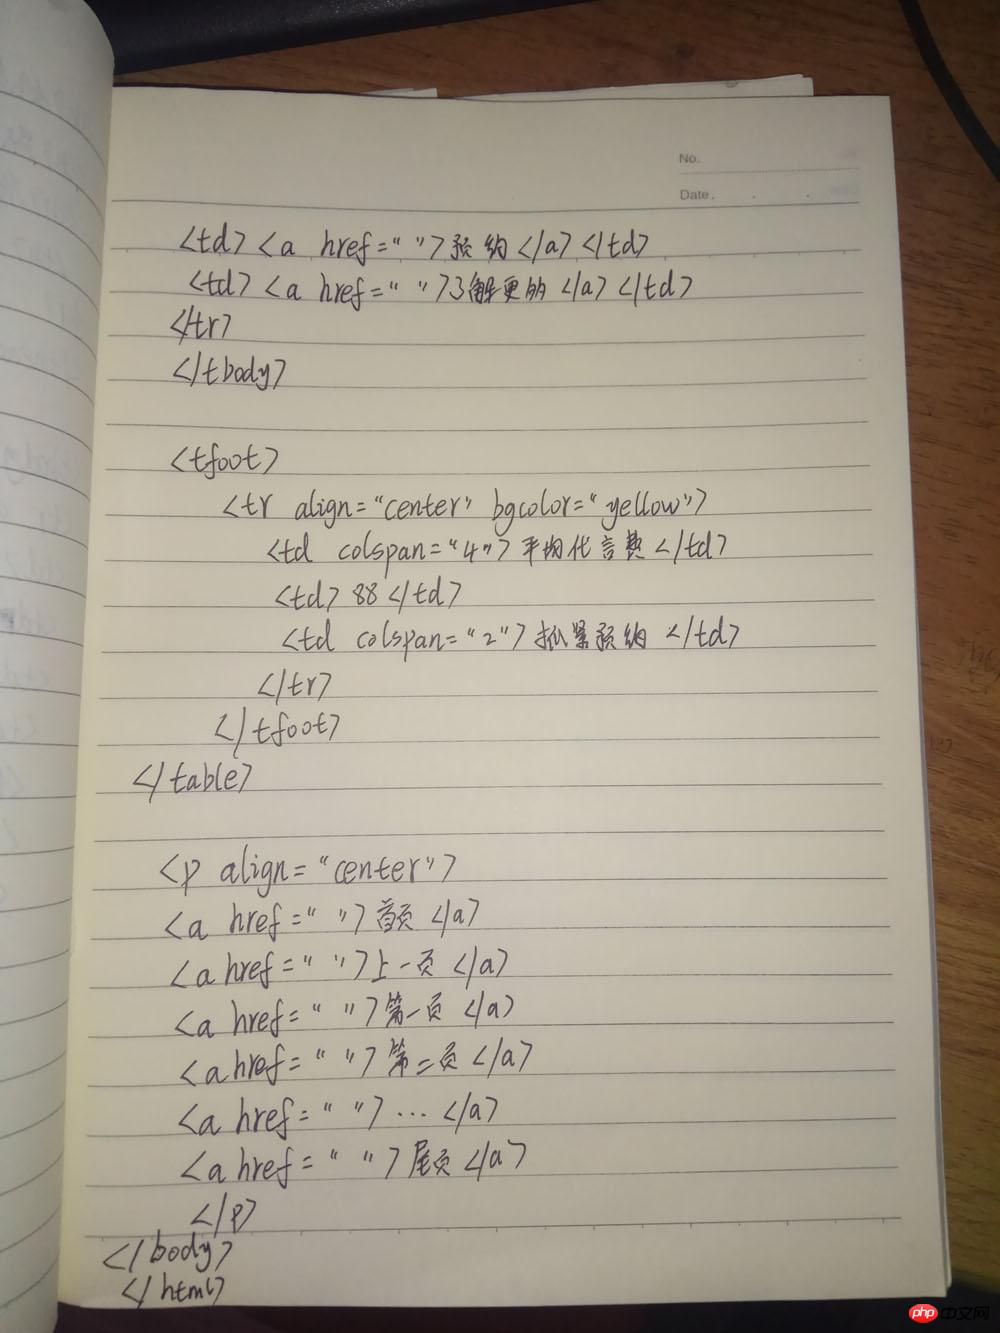 No.
Date.
<td> <a href=" "> 预约 </a> </td>
<td> <a href=" "> 了解更的 </a> </td>
</tr>
</tbody>
<tfoot>
<tr align="center" bgcolor="yellow">
<td colspan="4"> 平均代言费 </td>
<td> 88 </td>
<td colspan="2"> 抓紧预约 </td>
</tr>
</tfoot>
</table>
<p align="center">
<a href=" "> 首页 </a>
<a href=" "> 上一页 </a>
<a href=" "> 第一页 </a>
<a href=" "> 第二页 </a>
<a href=" "> ... </a>
<a href=" "> 尾页 </a>
</p>
</body>
</html>
php 中文网